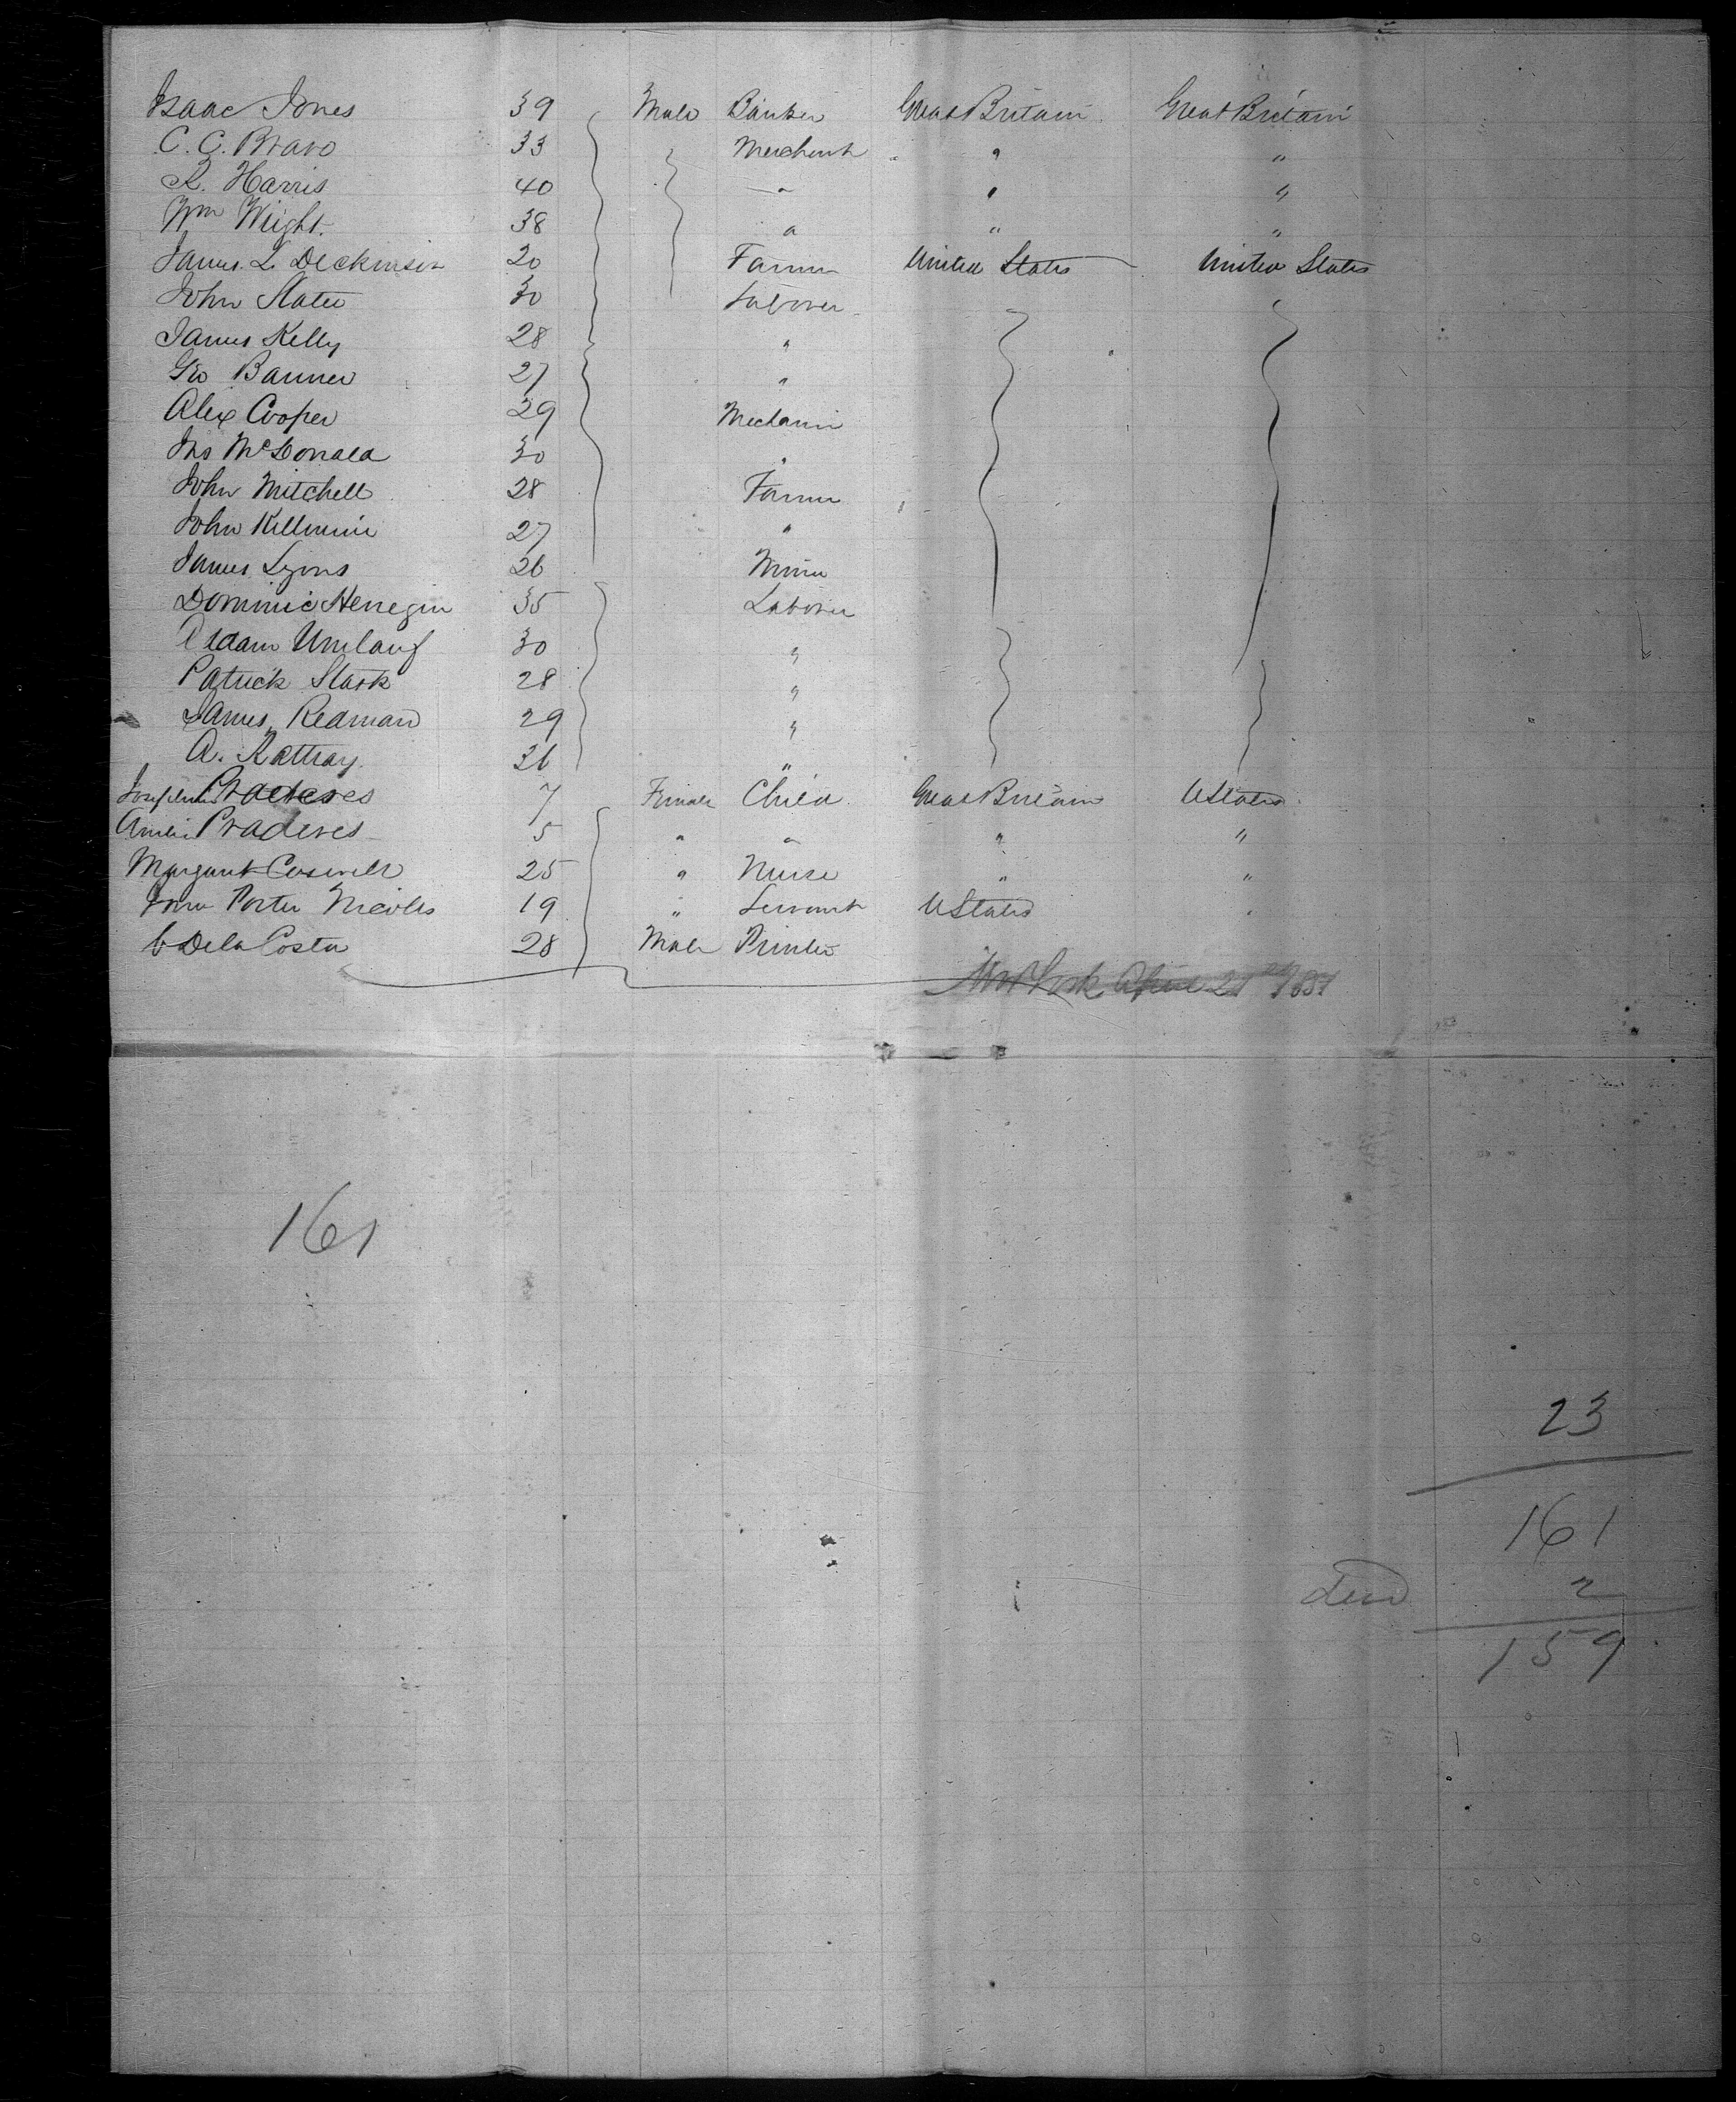 Isaac Jones 39 Male Banker Great Britain Great Britain
C. C. Bravo 33 Merchant " "
R. Harris 40 " " "
Wm Wright 38 " " "
James L. Deckinson 20 Farmer United States United States
John Slater 30 Laborer
James Kelly 28 "
Geo Banner 27 "
Alex Cooper 29 Mechanic
Jno McDonald 30 "
John Mitchell 28 Farmer
John Killmine 27 "
James Lyons 26 Miner
Dominic Henegin 35 Laborer
Adam Umlauf 30 "
Patrick Stark 28 "
James Redman 29 "
A. Rattray 36 "
Josephine 7 Female Child Great Britain U States
Amelia Praderes 5 " " " "
Margaret 25 " Nurse " "
Porter Nicolls 19 " Servant U States "
De la Costa 28 Male Printer
New York April
161
23
161
2
159